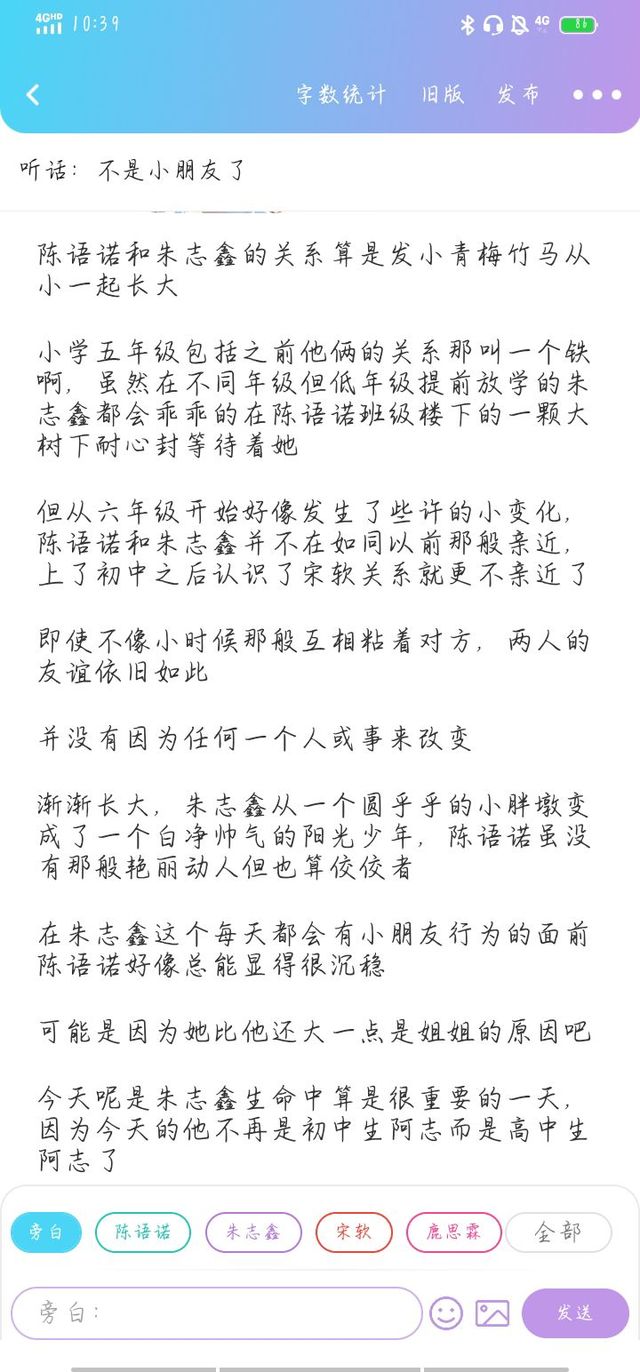 4GHD 10:39 4G 86
字数统计 旧版 发布
听话：不是小朋友了
陈语诺和朱志鑫的关系算是发小青梅竹马从
小一起长大
小学五年级包括之前他俩的关系那叫一个铁
啊，虽然在不同年级但低年级提前放学的朱
志鑫都会乖乖的在陈语诺班级楼下的一颗大
树下耐心封等待着她
但从六年级开始好像发生了些许的小变化，
陈语诺和朱志鑫并不在如同以前那般亲近，
上了初中之后认识了宋软关系就更不亲近了
即使不像小时候那般互相粘着对方，两人的
友谊依旧如此
并没有因为任何一个人或事来改变
渐渐长大，朱志鑫从一个圆乎乎的小胖墩变
成了一个白净帅气的阳光少年，陈语诺虽没
有那般艳丽动人但也算佼佼者
在朱志鑫这个每天都会有小朋友行为的面前
陈语诺好像总能显得很沉稳
可能是因为她比他还大一点是姐姐的原因吧
今天呢是朱志鑫生命中算是很重要的一天，
因为今天的他不再是初中生阿志而是高中生
阿志了
旁白 陈语诺 朱志鑫 宋软 鹿思霖 全部
旁白： 发送